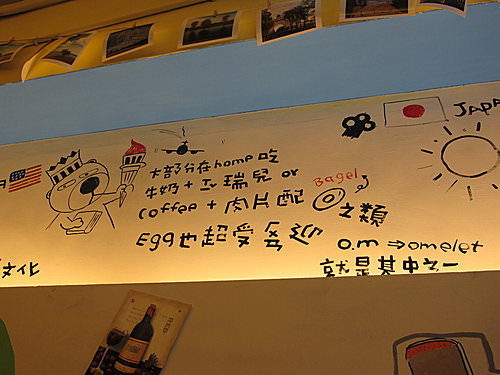 大部分在home吃
牛奶+玉瑞兒 or
coffee+肉片配
Bagel
之類
Egg也超受歡迎
JAPA
o.m→omelet
就是其中之一
文化